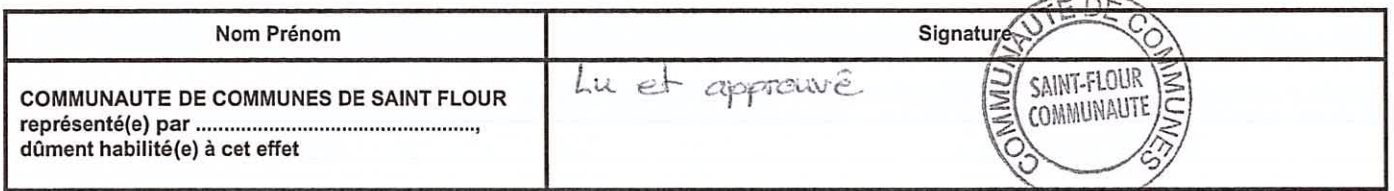 Nom Prénom
Signature
COMMUNAUTE DE COMMUNES DE SAINT FLOUR
représenté(e) par ................................................,
dûment habilité(e) à cet effet
Lu et approuvé
COMMUNAUTE DE COMMUNES
SAINT-FLOUR
COMMUNAUTE